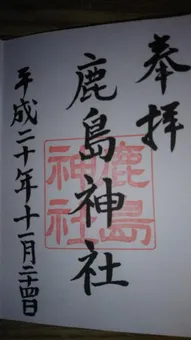 奉拝
鹿島神社
鹿島
神社
平成二十年十一月二十四日